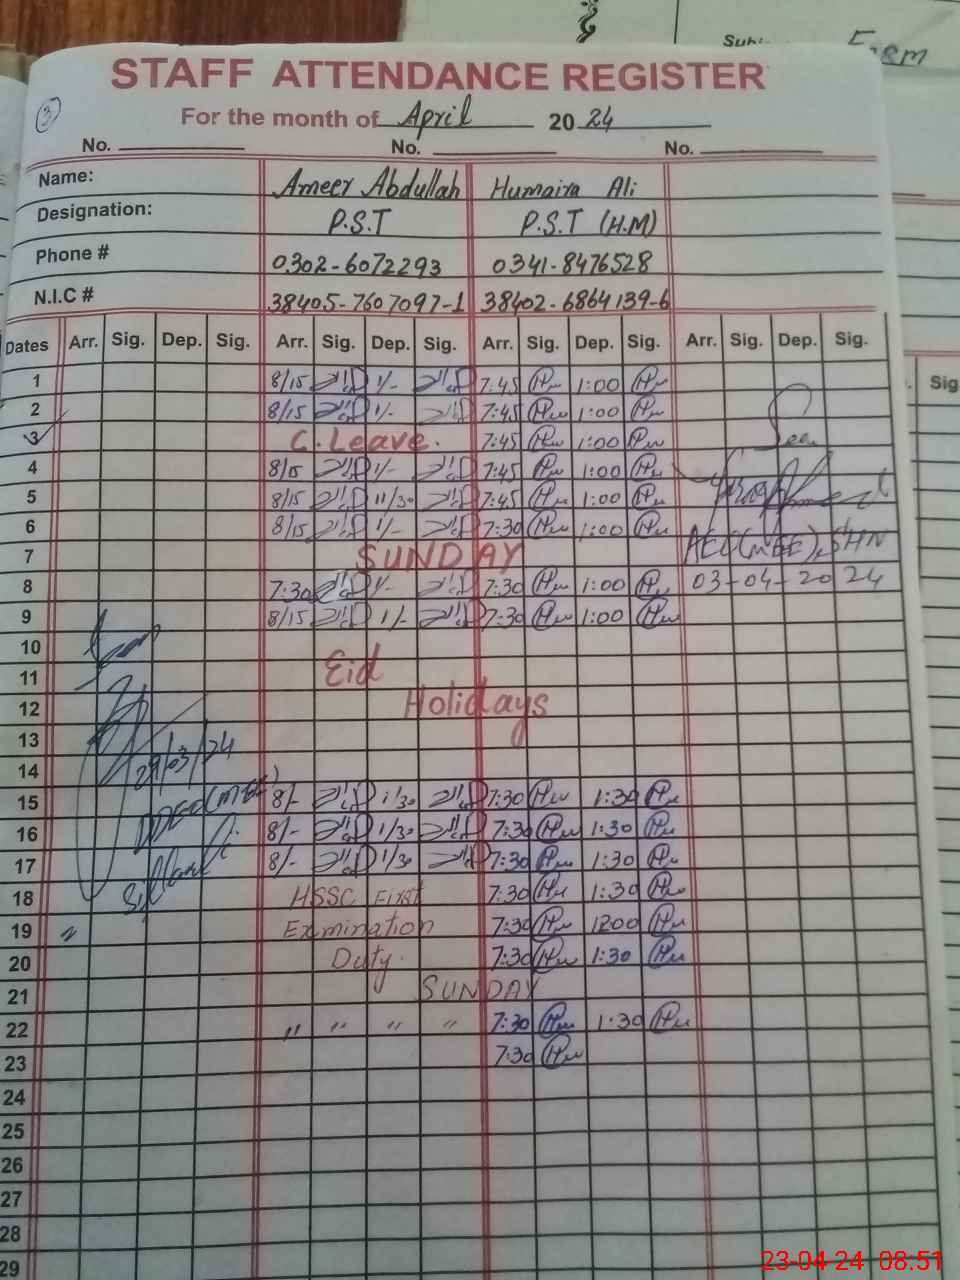 Farm
STAFF ATTENDANCE REGISTER
3
For the month of April 2024
No. No. No.
Name: Ameer Abdullah Humaira Ali
Designation: P.S.T P.S.T (H.M)
Phone # 0302-6072293 0341-8476528
N.I.C # 38405-7607097-1 38402-6864139-6
Dates Arr. Sig. Dep. Sig. Arr. Sig. Dep. Sig. Arr. Sig. Dep. Sig. Arr. Sig. Dep. Sig.
Sig
1 8/15 1/- 7:45 1:00
2 8/15 1/- 7:45 1:00
3 C. Leave. 7:45 1:00 Seen
4 8/15 1/- 7:45 1:00
5 8/15 11/30 7:45 1:00
6 8/15 1/- 7:30 1:00
7 SUNDAY
8 7:30 1/- 7:30 1:00 03-04-2024
9 8/15 1/- 7:30 1:00
10
11 Eid
12 Holidays
13
14 29/03/24
15 8/- 1/30 7:30 1:30
16 8/- 1/30 7:30 1:30
17 8/- 1/30 7:30 1:30
18 HSSC First 7:30 1:30
19 " Examination 7:30 1200
20 Duty. 7:30 1:30
21 SUNDAY
22 " " " " 7:30 1:30
23 7:30
24
25
26
27
28
29
23-04-24 08:51